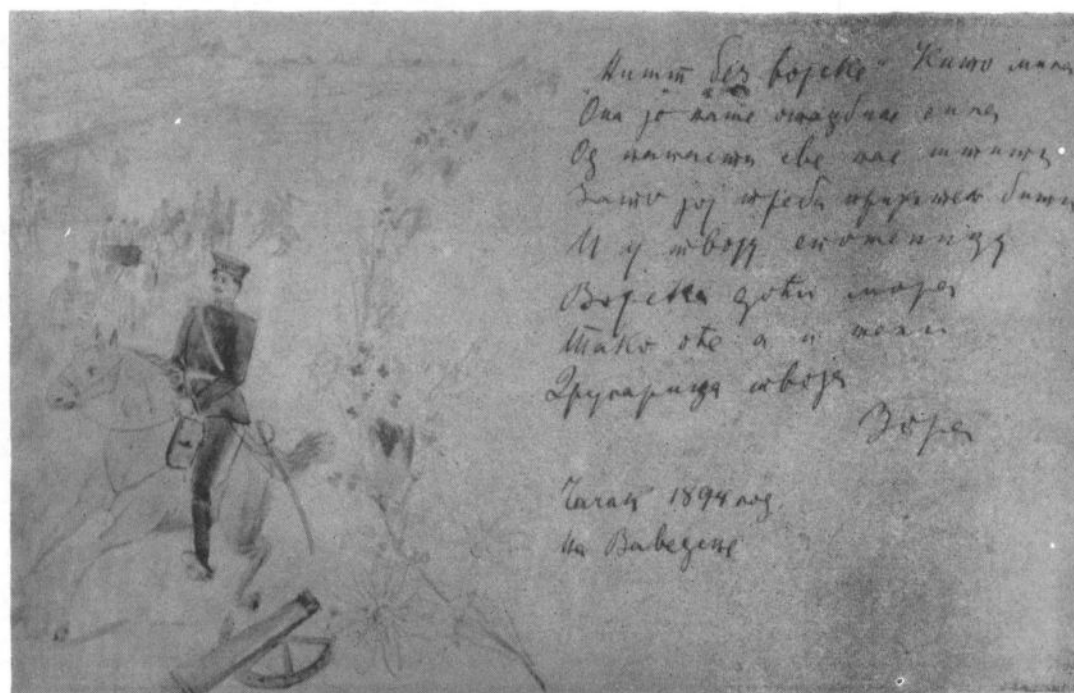 "Ништ без војске" Кишо мила
Она је наше отаџбине сила
Од напасти све нас штити
Зато јој треба пријатељ бити
И у твоју споменицу
Војска доћи мора
Тако оће а и жели
Другарица твоја
Зора
Чачак 1894 год.
на Ваведење